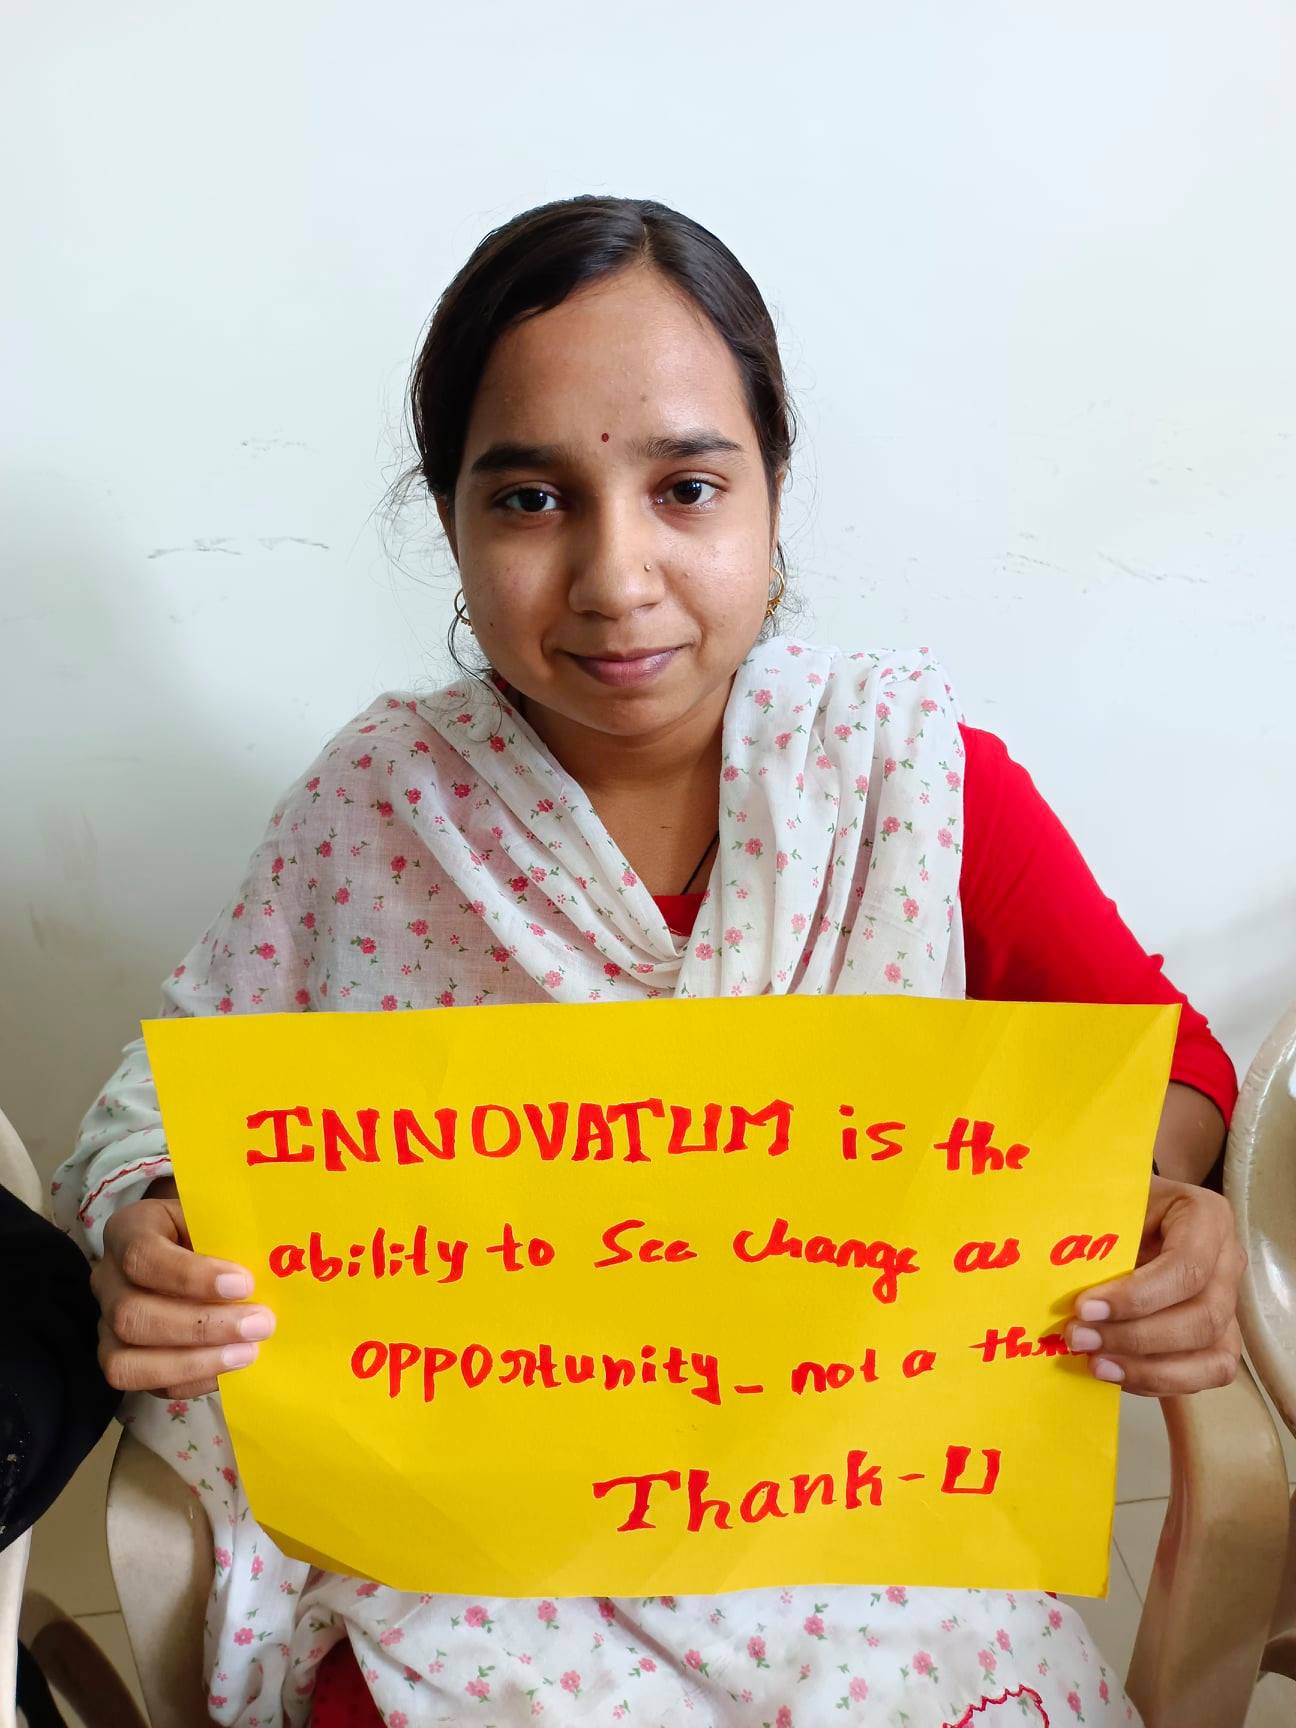 INNOVATUM is the
ability to See change as an
opportunity_ not a
Thank-U